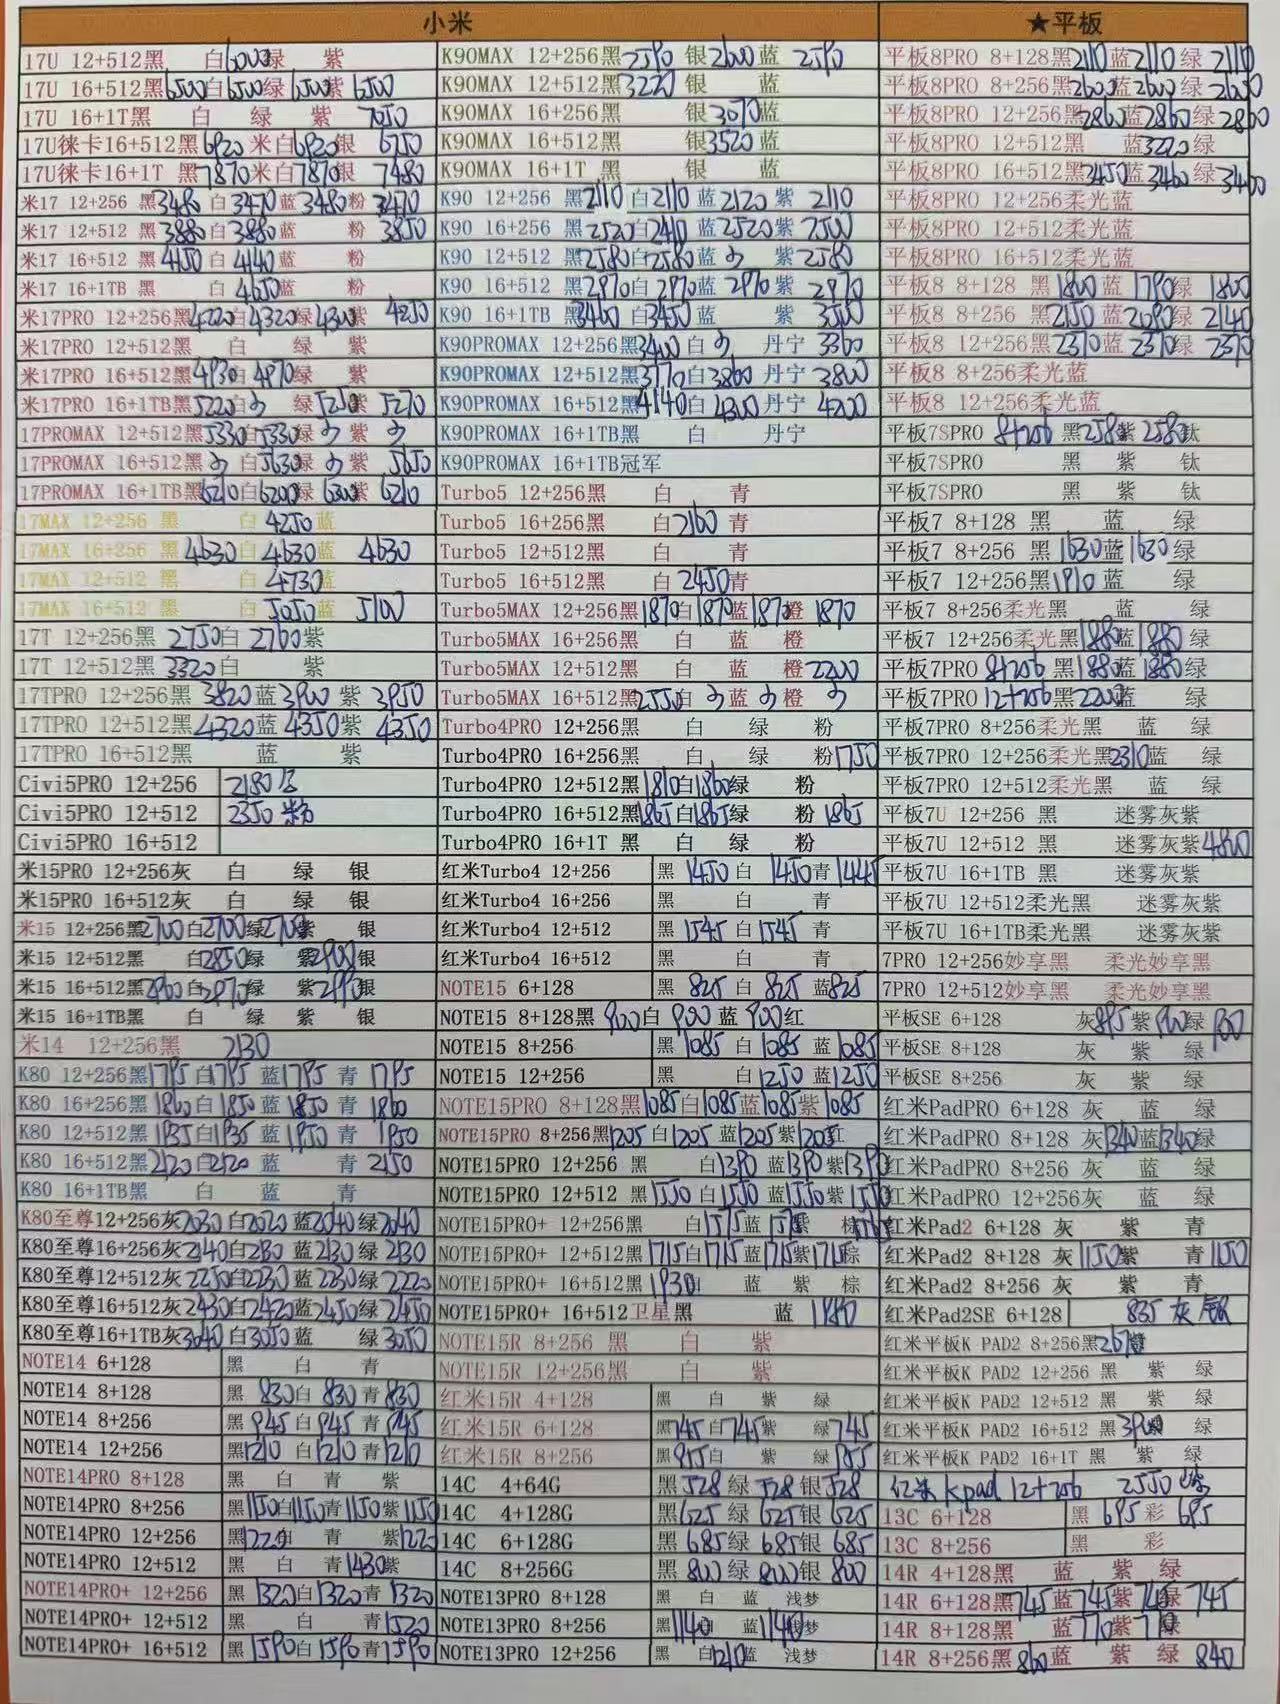 小米
17U 12+512黑 白6000绿 紫
17U 16+512黑6500白6500绿6500紫 6500
17U 16+1T黑 白 绿 紫 7050
17U徕卡16+512黑6920 米白6920银 6750
17U徕卡16+1T 黑7870米白7870银 7480
米17 12+256 黑3480白 3470蓝 3480粉 3470
米17 12+512 黑3880白 3880蓝 粉 3850
米17 16+512 黑 4150白 4140蓝 粉
米17 16+1TB 黑 白 4650蓝 粉
米17PRO 12+256黑4220白4320绿4300紫 4250
米17PRO 12+512黑 白 绿 紫
米17PRO 16+512黑4930白 4970绿 紫
米17PRO 16+1TB黑5220白 绿5250紫 5270
17PROMAX 12+512黑5330白5330绿 紫
17PROMAX 16+512黑 白5630绿 紫 5650
17PROMAX 16+1TB黑6210白6200绿 6300紫 6210
17MAX 12+256 黑 白 4250蓝
17MAX 16+256 黑 4630白 4630蓝 4630
17MAX 12+512 黑 白 4730蓝
17MAX 16+512 黑 白 5050蓝 5100
17T 12+256黑 2750白 2760紫
17T 12+512黑 3320白 紫
17TPRO 12+256黑 3820蓝 3900 紫 3950
17TPRO 12+512黑4320蓝 4350紫 4350
17TPRO 16+512黑 蓝 紫
Civi5PRO 12+256 2180
Civi5PRO 12+512 2350 粉
Civi5PRO 16+512
米15PRO 12+256灰 白 绿 银
米15PRO 16+512灰 白 绿 银
米15 12+256黑2700白2700绿2700紫 银
米15 12+512黑 白2850绿 紫2900银
米15 16+512黑2960白2970绿 紫2990银
米15 16+1TB黑 白 绿 紫 银
米14 12+256黑 2130
K80 12+256黑1795白1795 蓝1795 青 1795
K80 16+256黑1860白1850 蓝1850 青 1860
K80 12+512黑1935白1935 蓝1950 青 1950
K80 16+512黑2120白2120 蓝 青 2150
K80 16+1TB黑 白 蓝 青
K80至尊12+256灰2030白2020 蓝2040绿2040
K80至尊16+256灰2140白2130 蓝2130绿 2130
K80至尊12+512灰2250白2230 蓝2230绿2220
K80至尊16+512灰2430白2420蓝2450绿2450
K80至尊16+1TB灰3040白3050蓝 绿3050
NOTE14 6+128 黑 白 青
NOTE14 8+128 黑 830白 830青830
NOTE14 8+256 黑 945白 945青945
NOTE14 12+256 黑1210白1210青1210
NOTE14PRO 8+128 黑 白 青 紫
NOTE14PRO 8+256 黑1150白1150青1150紫1150
NOTE14PRO 12+256 黑1220白 青 紫1220
NOTE14PRO 12+512 黑 白 青1430紫
NOTE14PRO+ 12+256 黑 1320白1320青1320
NOTE14PRO+ 12+512 黑 白 青1520
NOTE14PRO+ 16+512 黑 1590白1590青1590
K90MAX 12+256黑2590 银2600蓝 2590
K90MAX 12+512黑3220 银 蓝
K90MAX 16+256黑 银3070蓝
K90MAX 16+512黑 银3520蓝
K90MAX 16+1T 黑 银 蓝
K90 12+256 黑2110白2110蓝2120紫 2110
K90 16+256 黑2520白2410蓝2520紫 2500
K90 12+512 黑2580白2580蓝 紫2580
K90 16+512 黑2970白2970蓝 2970紫 2970
K90 16+1TB 黑3400 白3450蓝 紫 3500
K90PROMAX 12+256黑3400白 丹宁 3360
K90PROMAX 12+512黑3770白3860 丹宁 3800
K90PROMAX 16+512黑4140白4300 丹宁 4200
K90PROMAX 16+1TB黑 白 丹宁
K90PROMAX 16+1TB冠军
Turbo5 12+256黑 白 青
Turbo5 16+256黑 白2160 青
Turbo5 12+512黑 白 青
Turbo5 16+512黑 白 2450青
Turbo5MAX 12+256黑1870白1870蓝1870橙 1870
Turbo5MAX 16+256黑 白 蓝 橙
Turbo5MAX 12+512黑 白 蓝 橙2200
Turbo5MAX 16+512黑2550白 蓝 橙
Turbo4PRO 12+256黑 白 绿 粉
Turbo4PRO 16+256黑 白 绿 粉1750
Turbo4PRO 12+512黑1810白1860绿 粉
Turbo4PRO 16+512黑1865白1865绿 粉 1865
Turbo4PRO 16+1T 黑 白 绿 粉
红米Turbo4 12+256 黑 1450白 1450青1445
红米Turbo4 16+256 黑 白 青
红米Turbo4 12+512 黑 1545白1545 青
红米Turbo4 16+512 黑 白 青
NOTE15 6+128 黑 825白 825 蓝825
NOTE15 8+128黑 900白 900 蓝 900红
NOTE15 8+256 黑 1085 白 1085 蓝1085
NOTE15 12+256 黑 白1250 蓝1250
NOTE15PRO 8+128黑1085白1085蓝1085紫1085
NOTE15PRO 8+256黑1205白1205蓝1205紫1205红
NOTE15PRO 12+256 黑 白1390 蓝1390 紫1390
NOTE15PRO 12+512 黑1550白1550蓝1550紫1550
NOTE15PRO+ 12+256黑 白1575蓝1575紫 棕1565
NOTE15PRO+ 12+512黑1715白1715 蓝1715紫1715棕
NOTE15PRO+ 16+512黑1930白 蓝 紫 棕
NOTE15PRO+ 16+512卫星黑 蓝 1980
NOTE15R 8+256 黑 白 紫
NOTE15R 12+256黑 白 紫
红米15R 4+128 黑 白 紫 绿
红米15R 6+128 黑745白745紫 绿745
红米15R 8+256 黑955白 紫 绿955
14C 4+64G 黑528绿 528银528
14C 4+128G 黑625绿 625银 625
14C 6+128G 黑685绿 685银 685
14C 8+256G 黑 800绿 800银 800
NOTE13PRO 8+128 黑 白 蓝 浅梦
NOTE13PRO 8+256 黑1140 蓝1140浅梦
NOTE13PRO 12+256 黑 白1210蓝 浅梦
★平板
平板8PRO 8+128黑2110蓝2110 绿 2110
平板8PRO 8+256黑2600蓝2600绿 2600
平板8PRO 12+256黑2860蓝2860绿2860
平板8PRO 12+512黑 蓝3220绿
平板8PRO 16+512黑3450蓝3460绿3460
平板8PRO 12+256柔光蓝
平板8PRO 12+512柔光蓝
平板8PRO 16+512柔光蓝
平板8 8+128 黑1800 蓝 1790绿 1800
平板8 8+256 黑2150蓝2090绿 2140
平板8 12+256黑2370蓝 2370绿 2370
平板8 8+256柔光蓝
平板8 12+256柔光蓝
平板7SPRO 8+256 黑2580紫 2580钛
平板7SPRO 黑 紫 钛
平板7SPRO 黑 紫 钛
平板7 8+128 黑 蓝 绿
平板7 8+256 黑 1630蓝1630绿
平板7 12+256黑1910蓝 绿
平板7 8+256柔光黑 蓝 绿
平板7 12+256柔光黑1880蓝1880 绿
平板7PRO 8+256 黑1880蓝1880绿
平板7PRO 12+256黑2200蓝 绿
平板7PRO 8+256柔光黑 蓝 绿
平板7PRO 12+256柔光黑2310蓝 绿
平板7PRO 12+512柔光黑 蓝 绿
平板7U 12+256 黑 迷雾灰紫
平板7U 12+512 黑 迷雾灰紫4800
平板7U 16+1TB 黑 迷雾灰紫
平板7U 12+512柔光黑 迷雾灰紫
平板7U 16+1TB柔光黑 迷雾灰紫
7PRO 12+256妙享黑 柔光妙享黑
7PRO 12+512妙享黑 柔光妙享黑
平板SE 6+128 灰895紫 900绿 900
平板SE 8+128 灰 紫 绿
平板SE 8+256 灰 紫 绿
红米PadPRO 6+128 灰 蓝 绿
红米PadPRO 8+128 灰1340蓝1340绿
红米PadPRO 8+256 灰 蓝 绿
红米PadPRO 12+256灰 蓝 绿
红米Pad2 6+128 灰 紫 青
红米Pad2 8+128 灰1150紫 青1150
红米Pad2 8+256 灰 紫 青
红米Pad2SE 6+128 835 灰 银
红米平板K PAD2 8+256黑
红米平板K PAD2 12+256 黑 紫 绿
红米平板K PAD2 12+512 黑 紫 绿
红米平板K PAD2 16+512 黑 绿
红米平板K PAD2 16+1T 黑 紫 绿
红米 kpad 12+256 2550
13C 6+128 黑 695 彩 695
13C 8+256 黑 彩
14R 4+128黑 蓝 紫 绿
14R 6+128黑745蓝745紫 740绿 745
14R 8+128黑 蓝770紫770
14R 8+256黑860蓝 紫 绿 840